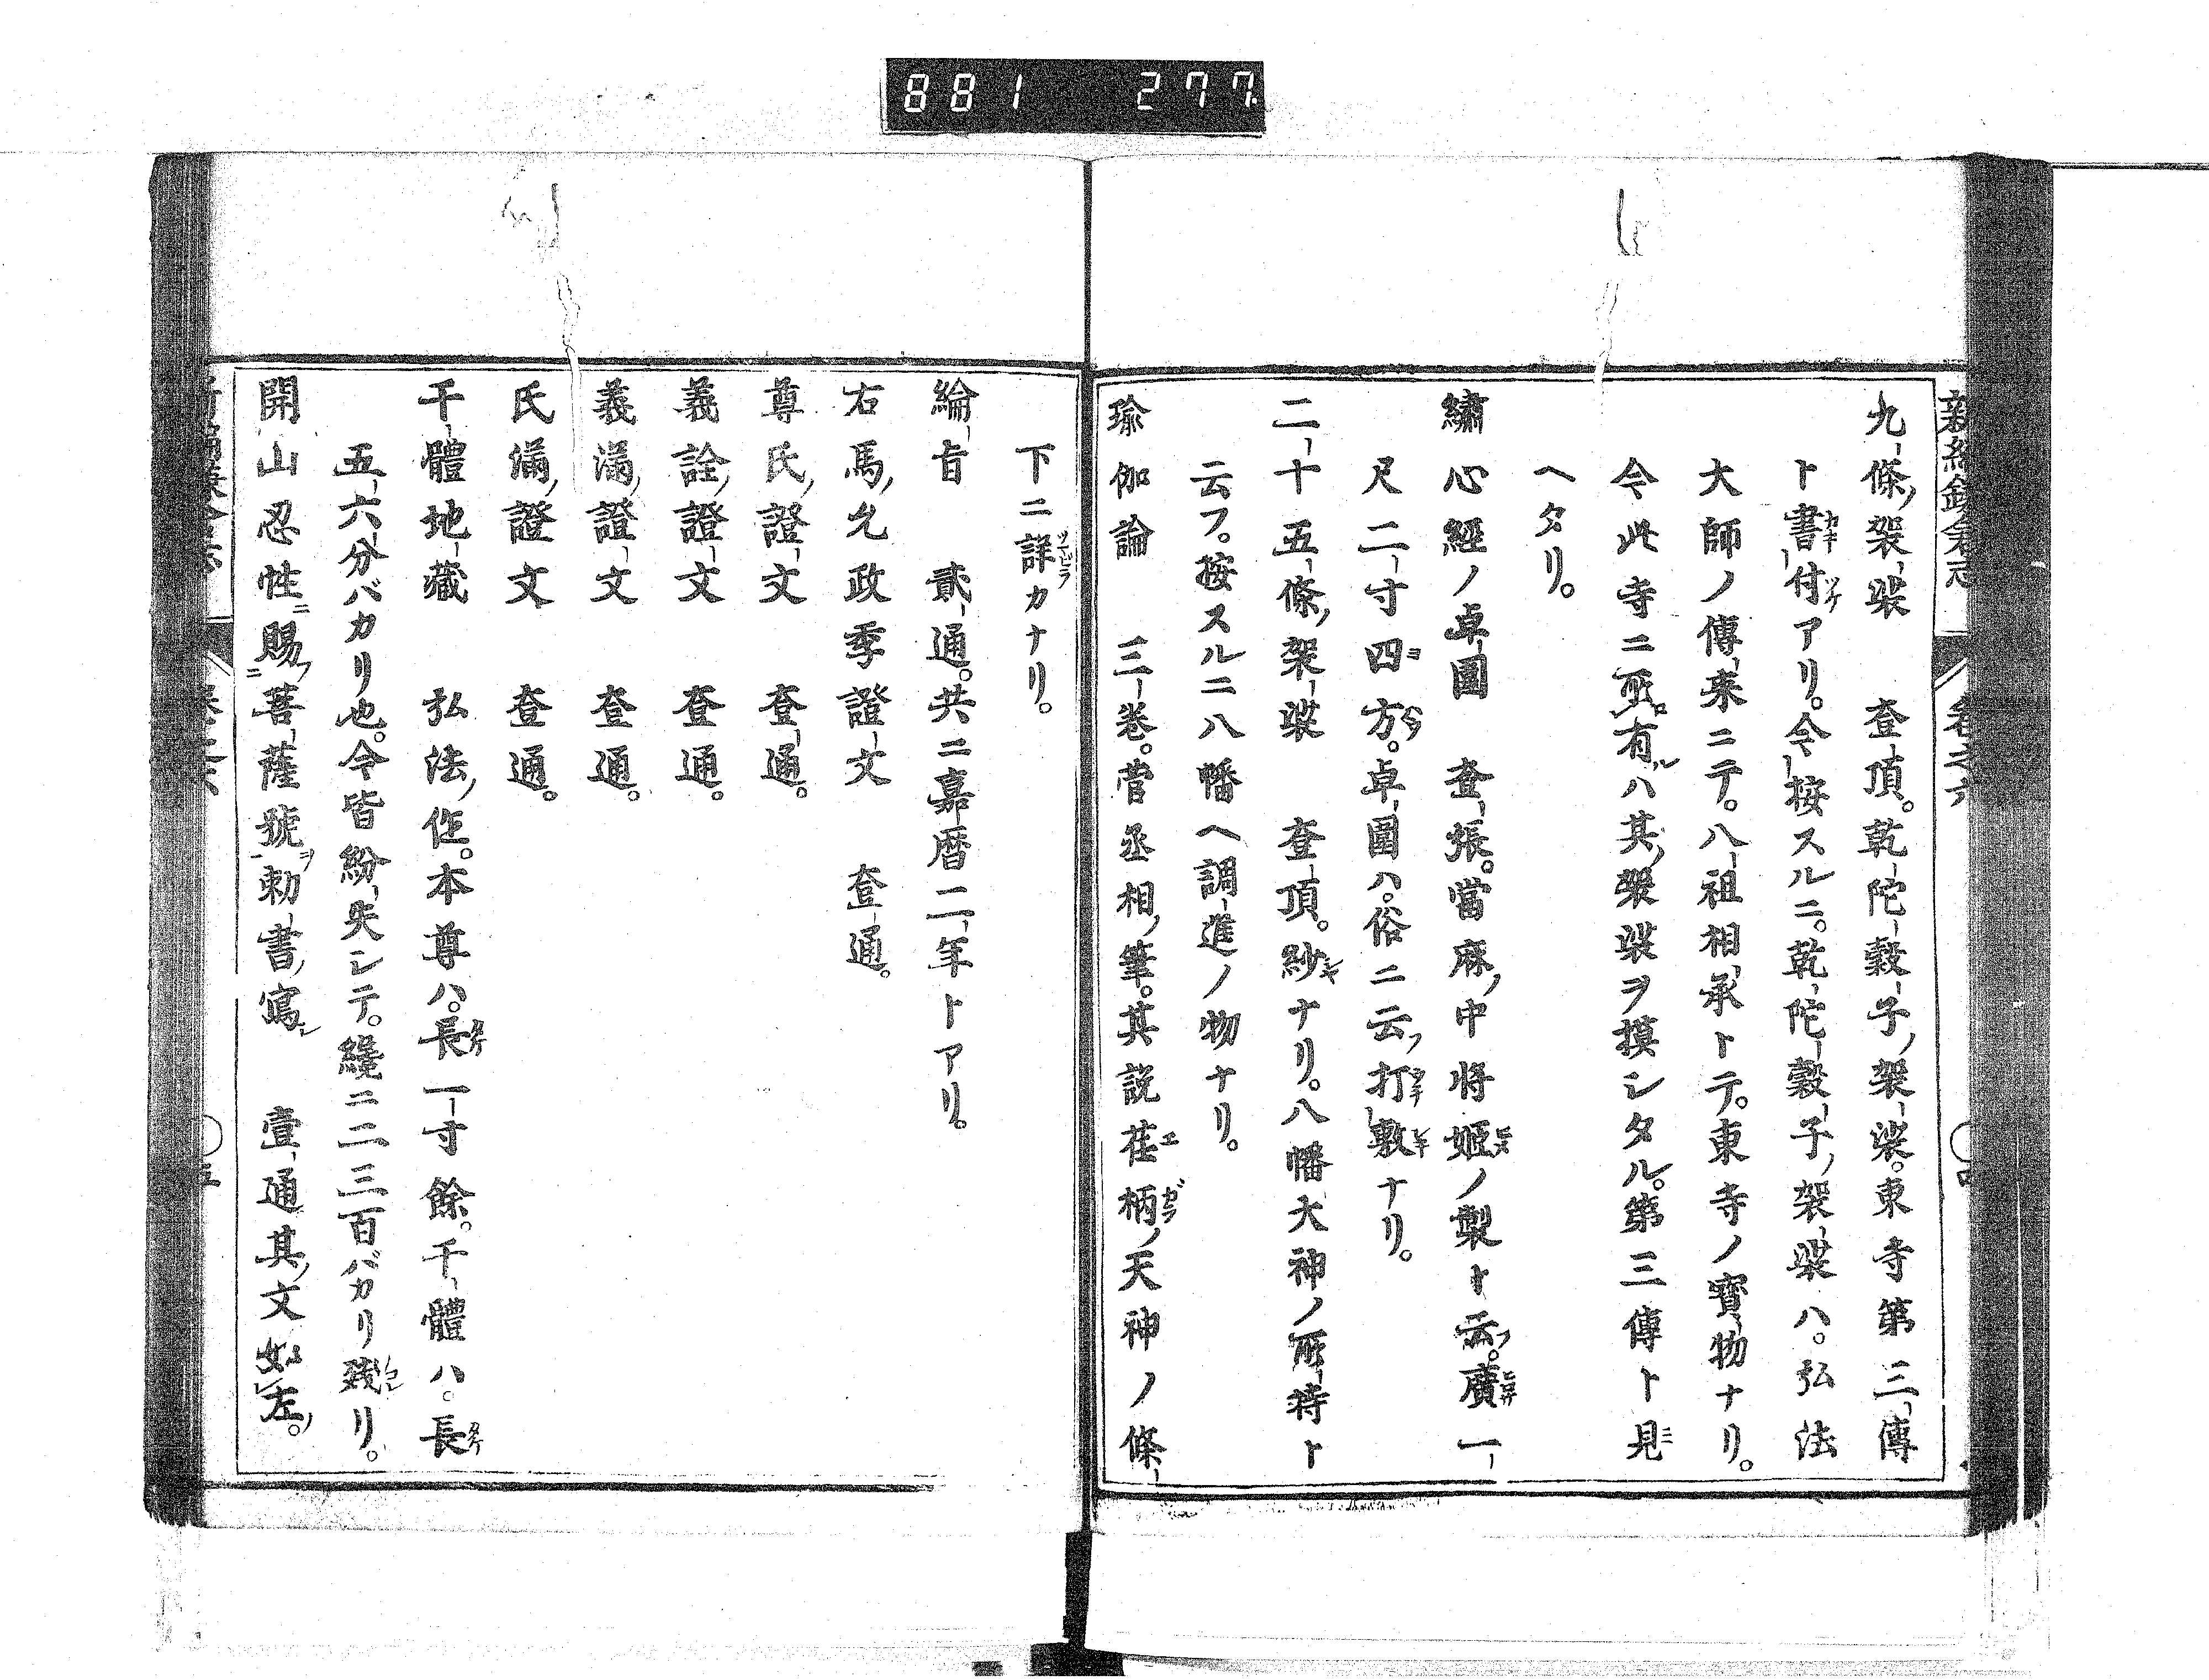 881 277
新編鎌倉志 卷之六
九條袈裟 壹頂。乾陀穀子袈裟。東寺第三傳
ト書付アリ。今按スルニ。乾陀穀子袈裟ハ。弘法
大師ノ傳來ニテ。八祖相承トテ。東寺ノ寶物ナリ。
今此寺ニ所有ハ其袈裟ヲ摸シタル。第三傳ト見
ヘタリ。
繡心經ノ卓圍 壹張。當麻中將姬ノ製ト云フ。廣一
尺二寸四方。卓圍ハ。俗ニ云打敷ナリ。
二十五條袈裟 壹頂。紗ナリ。八幡大神ノ所持ト
云フ。按スルニ八幡ヘ調進ノ物ナリ。
瑜伽論 三卷。菅丞相筆。其說荏柄ノ天神ノ條
下ニ詳カナリ。
綸旨 貳通。共ニ嘉曆二年トアリ。
右馬允政季證文 壹通。
尊氏證文 壹通。
義詮證文 壹通。
義滿證文 壹通。
氏滿證文 壹通。
千體地藏 弘法作。本尊ハ。長一寸餘。千體ハ。長
五六分バカリ也。今皆紛失シテ。纔ニ二三百バカリ殘リ。
開山忍性ニ賜菩薩號勅書寫 壹通其文如左。